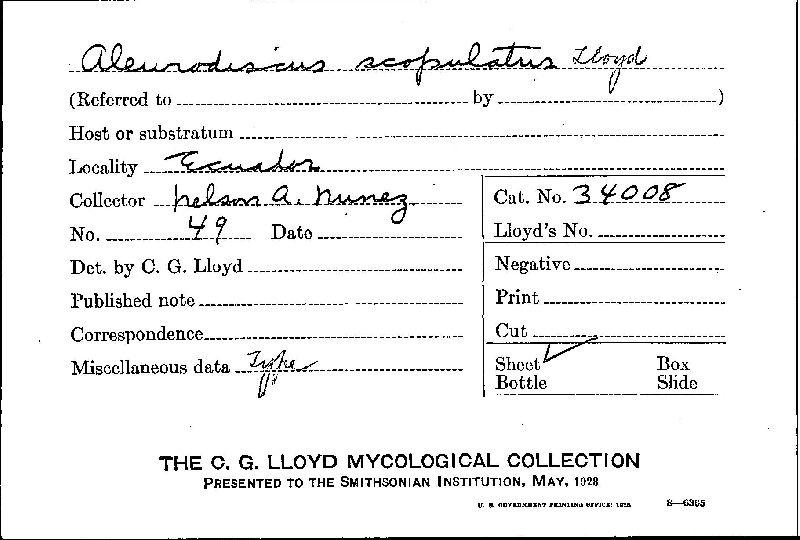 Aleurodiscus scopulatus Lloyd
(Referred to by )
Host or substratum
Locality Ecuador
Collector Nelson A. Nunez
No. 49 Date
Det. by C. G. Lloyd
Published note
Correspondence
Miscellaneous data Type
Cat. No. 34008
Lloyd's No.
Negative
Print
Cut
Sheet Box
Bottle Slide
THE C. G. LLOYD MYCOLOGICAL COLLECTION
PRESENTED TO THE SMITHSONIAN INSTITUTION, MAY, 1928
U. S. GOVERNMENT PRINTING OFFICE: 1928 8—6395